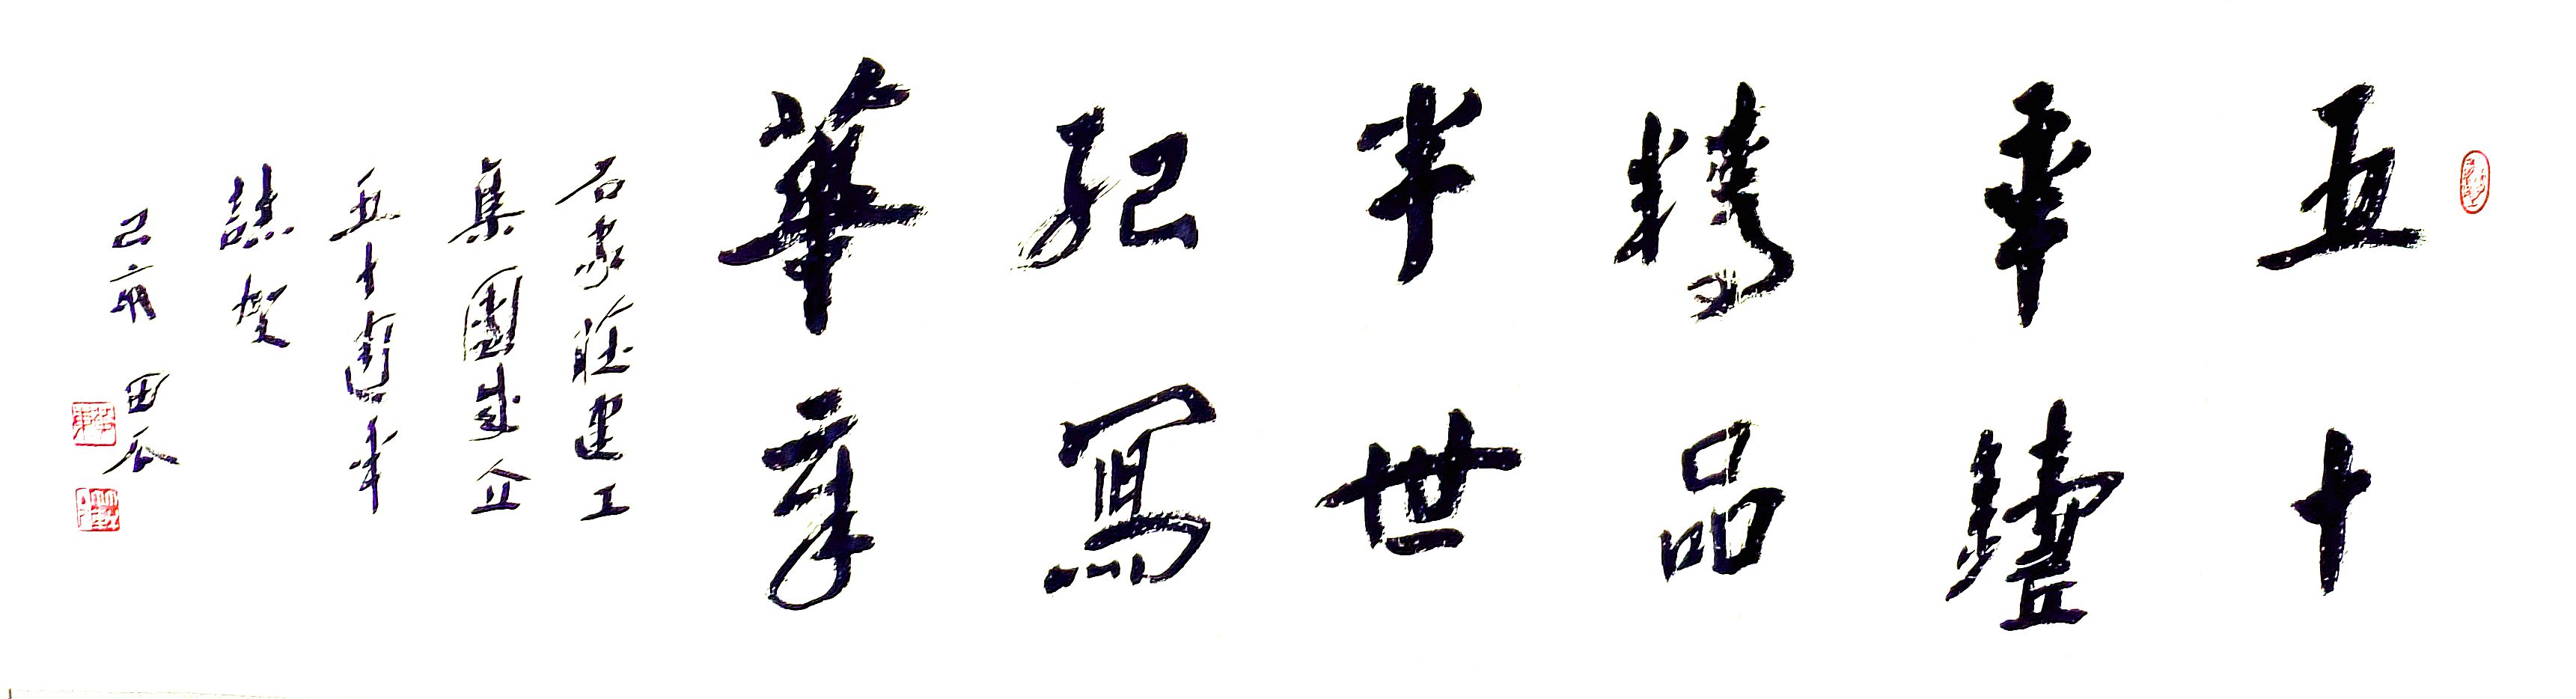 五十
年鑄
精品
半世
紀寫
華章
石家莊建工
集團成立
五十週年
誌賀
己亥 田人